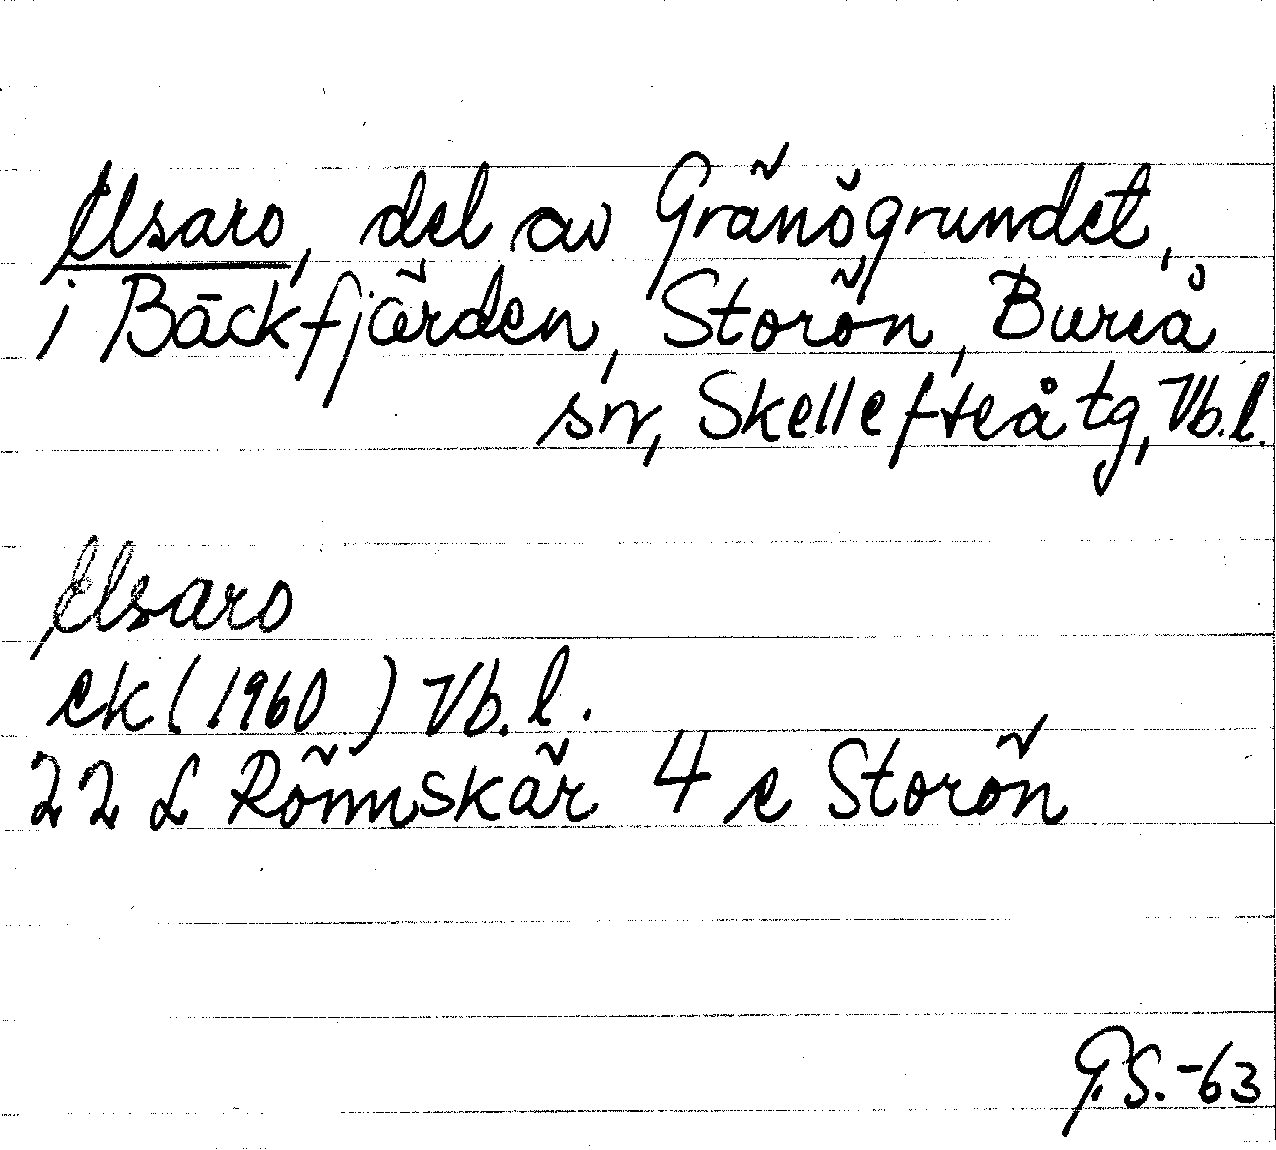 Elsaro, del av Gränögrundet,
i Bäckfjärden, Storön, Bureå
sn, Skellefteå tg, Vb.l.
Elsaro
ek (1960) Vb.l.
22 L Rönnskär 4 e Storön
G.S.-63